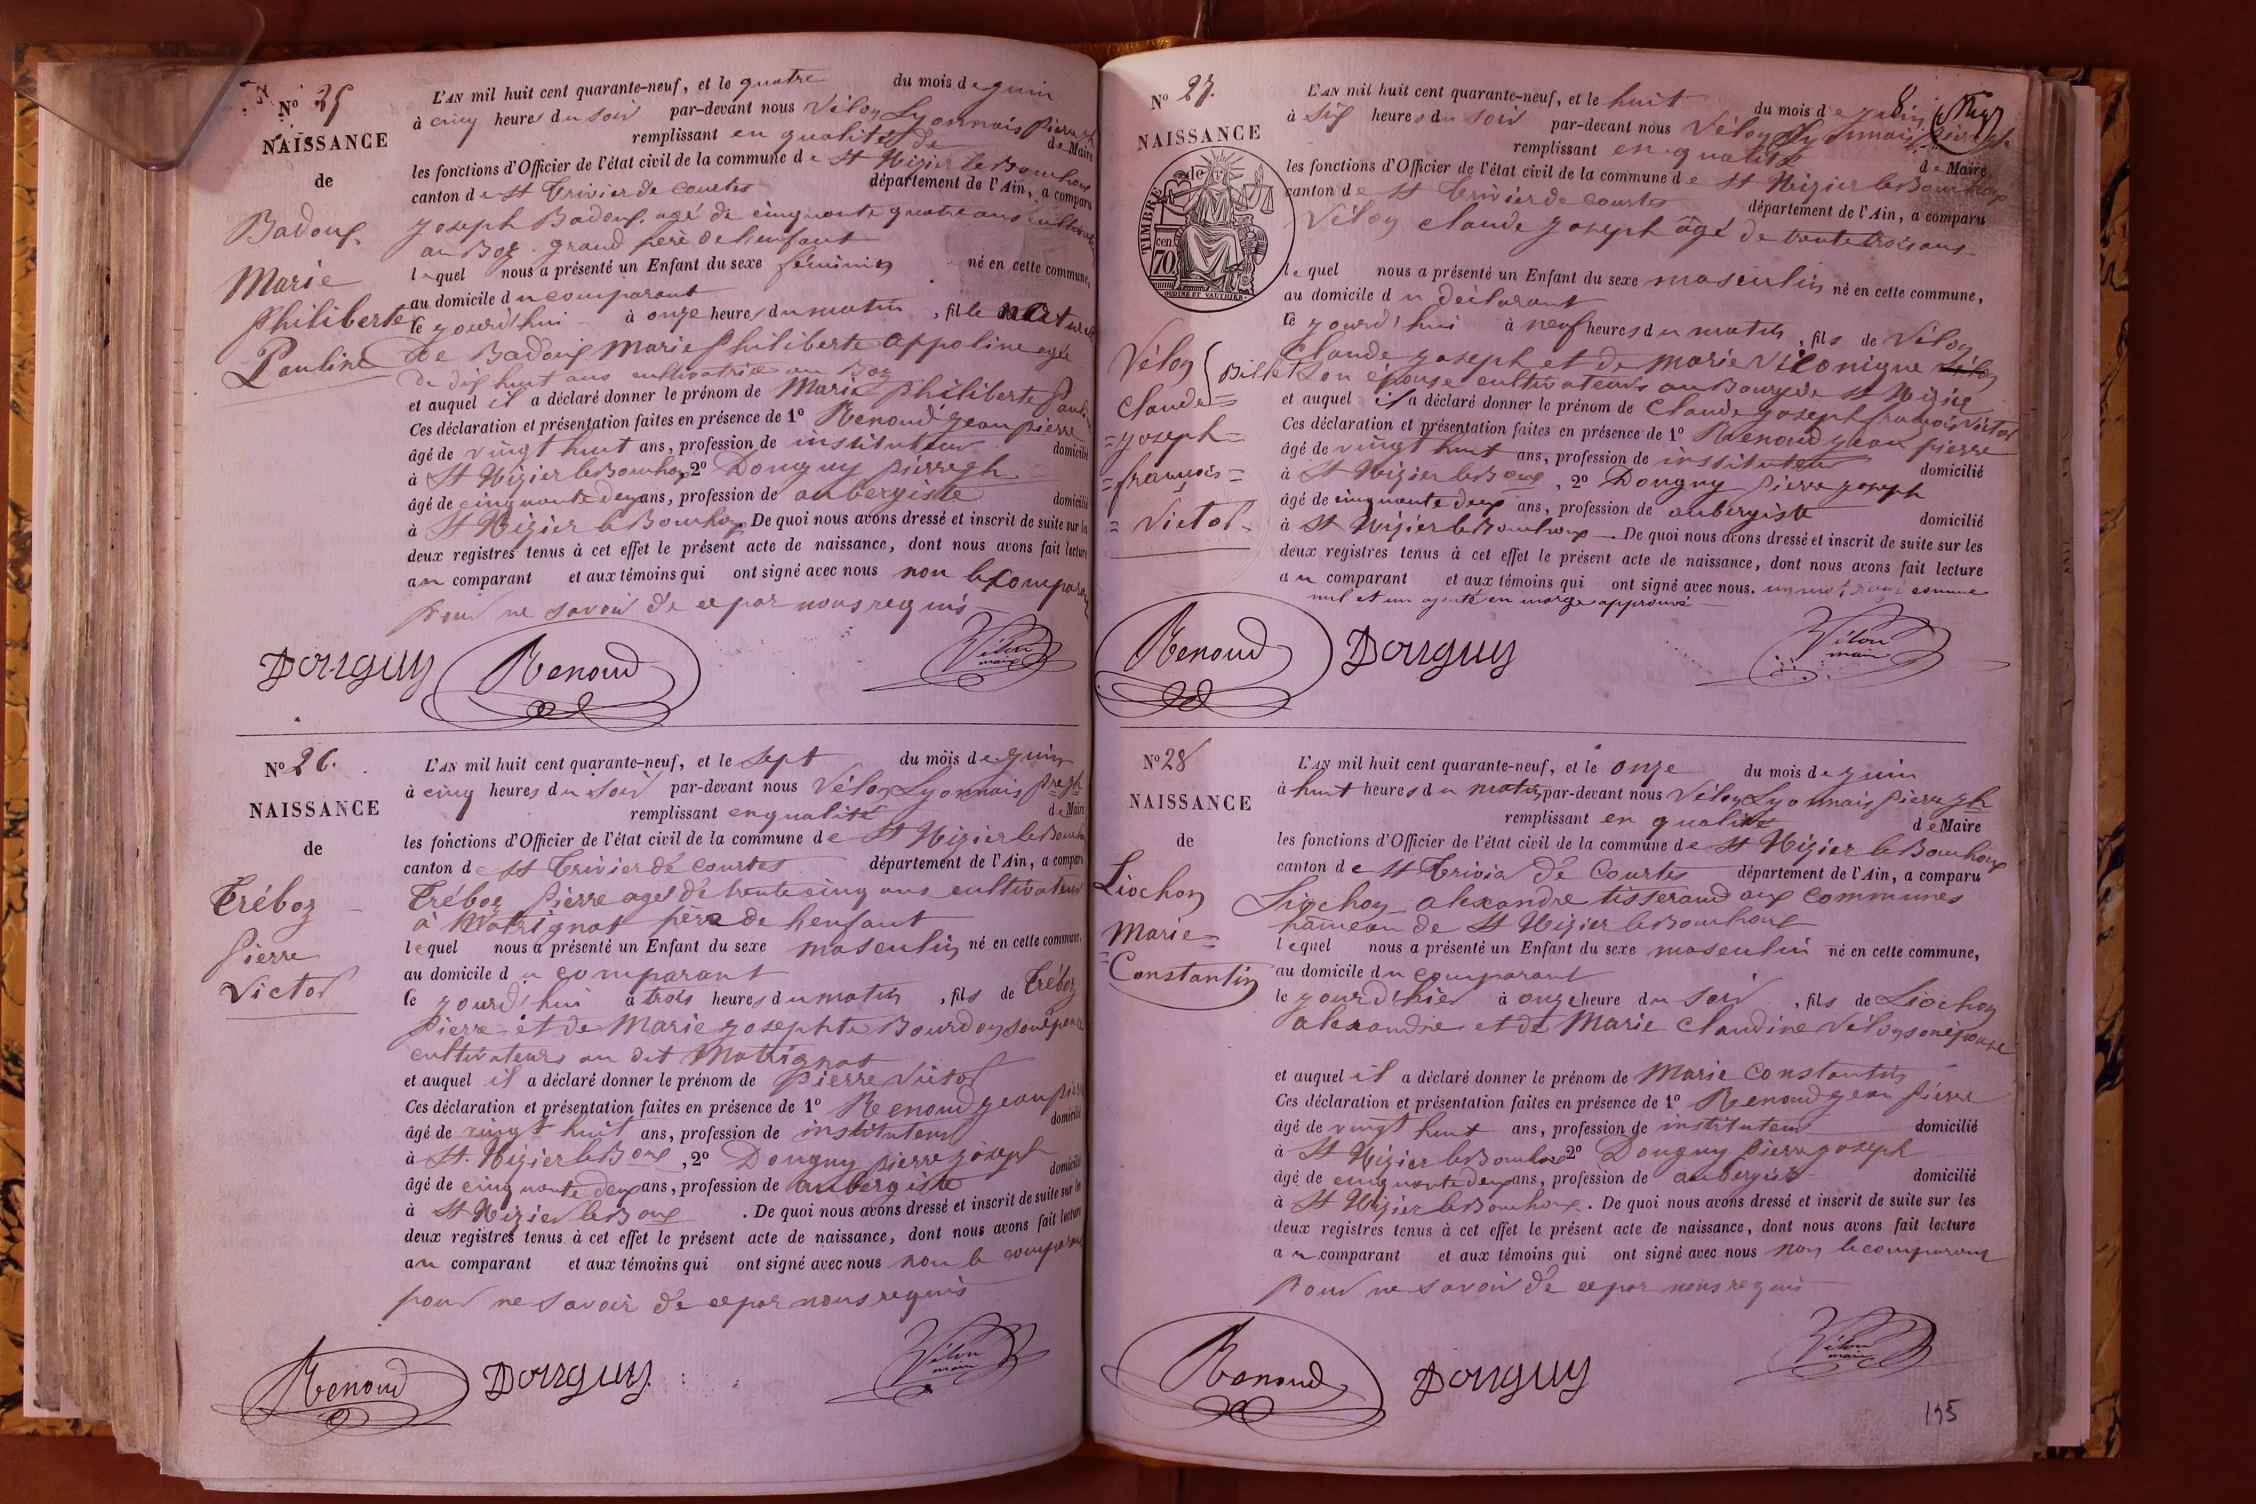 N° 25
NAISSANCE
de
Badoux
Marie
Philiberte
Pauline
L'AN mil huit cent quarante-neuf, et le quatre du mois de juin
à cinq heures du soir par-devant nous Vélon Lyonnais Pierre jh
remplissant en qualité de de Maire
les fonctions d'Officier de l'état civil de la commune de St Nizier le Bouhoux
canton de St Trivier de Courtes département de l'Ain, a comparu
Joseph Badoux agé de cinquante quatre ans cultivateur
au Boz grand père de l'enfant
lequel nous a présenté un Enfant du sexe féminin né en cette commune,
au domicile du comparant
le jourd'hui à onze heures du matin, fille naturelle
de Badoux Marie Philiberte Appoline agée
de dix huit ans cultivatrice au Boz
et auquel il a déclaré donner le prénom de Marie Philiberte Pauline
Ces déclaration et présentation faites en présence de 1° Renoud jean pierre
âgé de vingt huit ans, profession de instituteur domicilié
à St Nizier le Bouhoux, 2° Donguy pierre jh
âgé de cinquante deux ans, profession de aubergiste domicilié
à St Nizier le Bouhoux. De quoi nous avons dressé et inscrit de suite sur les
deux registres tenus à cet effet le présent acte de naissance, dont nous avons fait lecture
au comparant et aux témoins qui ont signé avec nous non le comparant
pour ne savoir de ce par nous requis
Donguy Renoud Vélon maire
N° 26.
NAISSANCE
de
Tréboz
Pierre
Victor
L'AN mil huit cent quarante-neuf, et le sept du mois de juin
à cinq heures du soir par-devant nous Vélon Lyonnais Pre jh
remplissant en qualité de Maire
les fonctions d'Officier de l'état civil de la commune de St Nizier le Bouhoux
canton de St Trivier de Courtes département de l'Ain, a comparu
Tréboz Pierre agé de trente cinq ans cultivateur
à Matrignat père de l'enfant
lequel nous a présenté un Enfant du sexe masculin né en cette commune,
au domicile du comparant
le jourd'hui à trois heures du matin, fils de Tréboz
Pierre et de Marie Josephte Bourdon son épouse
cultivateurs au dit Matrignat
et auquel il a déclaré donner le prénom de Pierre Victor
Ces déclaration et présentation faites en présence de 1° Renoud jean pierre
âgé de vingt huit ans, profession de instituteur domicilié
à St. Nizier le Boux, 2° Donguy pierre joseph
âgé de cinquante deux ans, profession de aubergiste domicilié
à St Nizier le Boux. De quoi nous avons dressé et inscrit de suite sur les
deux registres tenus à cet effet le présent acte de naissance, dont nous avons fait lecture
au comparant et aux témoins qui ont signé avec nous non le comparant
pour ne savoir de ce par nous requis
Renoud Donguy Vélon maire
N° 27.
NAISSANCE
TIMBRE
70 cen
Vélon
Claude
Joseph
françois
Victor
Billet
L'AN mil huit cent quarante-neuf, et le huit du mois de juin 8
à six heures du soir par-devant nous Vélon Lyonnais pierre jh
remplissant en qualité de Maire
les fonctions d'Officier de l'état civil de la commune de St Nizier le Bouhoux
canton de St Trivier de Courtes département de l'Ain, a comparu
Vélon claude joseph âgé de trente trois ans
lequel nous a présenté un Enfant du sexe masculin né en cette commune,
au domicile du déclarant
le jourd'hui à neuf heures du matin, fils de Vélon
Claude joseph et de marie Véronique Vélon
son épouse cultivateurs au Bourg de St Nizier
et auquel il a déclaré donner le prénom de Claude joseph françois Victor
Ces déclaration et présentation faites en présence de 1° Renoud jean pierre
âgé de vingt huit ans, profession de instituteur domicilié
à St Nizier le Boux, 2° Donguy pierre joseph
âgé de cinquante deux ans, profession de aubergiste domicilié
à St Nizier le Bouhoux. De quoi nous avons dressé et inscrit de suite sur les
deux registres tenus à cet effet le présent acte de naissance, dont nous avons fait lecture
au comparant et aux témoins qui ont signé avec nous. un mot rayé comme
nul et un ajouté en marge approuvé
Renoud Donguy Vélon maire
N° 28
NAISSANCE
de
Liochon
Marie
Constantin
L'AN mil huit cent quarante-neuf, et le onze du mois de juin
à huit heures du matin par-devant nous Vélon Lyonnais Pierre jh
remplissant en qualité de Maire
les fonctions d'Officier de l'état civil de la commune de St Nizier le Bouhoux
canton de St Trivier de Courtes département de l'Ain, a comparu
Liochon alexandre tisserand aux Communes
hameau de St Nizier le Bouhoux
lequel nous a présenté un Enfant du sexe masculin né en cette commune,
au domicile du comparant
le jour d'hier à onze heure du soir, fils de Liochon
alexandre et de Marie Claudine Vélon son épouse
et auquel il a déclaré donner le prénom de Marie Constantin
Ces déclaration et présentation faites en présence de 1° Renoud jean Pierre
âgé de vingt huit ans, profession de instituteur domicilié
à St Nizier le Bouhoux 2° Donguy pierre joseph
âgé de cinquante deux ans, profession de aubergiste domicilié
à St Nizier le Bouhoux. De quoi nous avons dressé et inscrit de suite sur les
deux registres tenus à cet effet le présent acte de naissance, dont nous avons fait lecture
au comparant et aux témoins qui ont signé avec nous non le comparant
pour ne savoir de ce par nous requis
Renoud Donguy Vélon maire
195